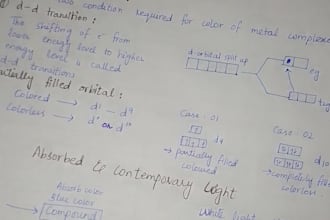 condition required for color of metal complexes
① d-d transition :
The shifting of e⁻ from
lower energy level to higher
energy level is called
d-d transition
partially filled orbital :
Colored → d¹ - d⁹
Colorless → d° or d¹⁰
d-orbital split up
eg
t₂g
Case : 01
d⁴
→ partially filled
coloured
Case : 02
d¹⁰
→ completely filled
colorless
Absorbed & Contemporary Light
Absorb color
Blue color
→ Compound
White light